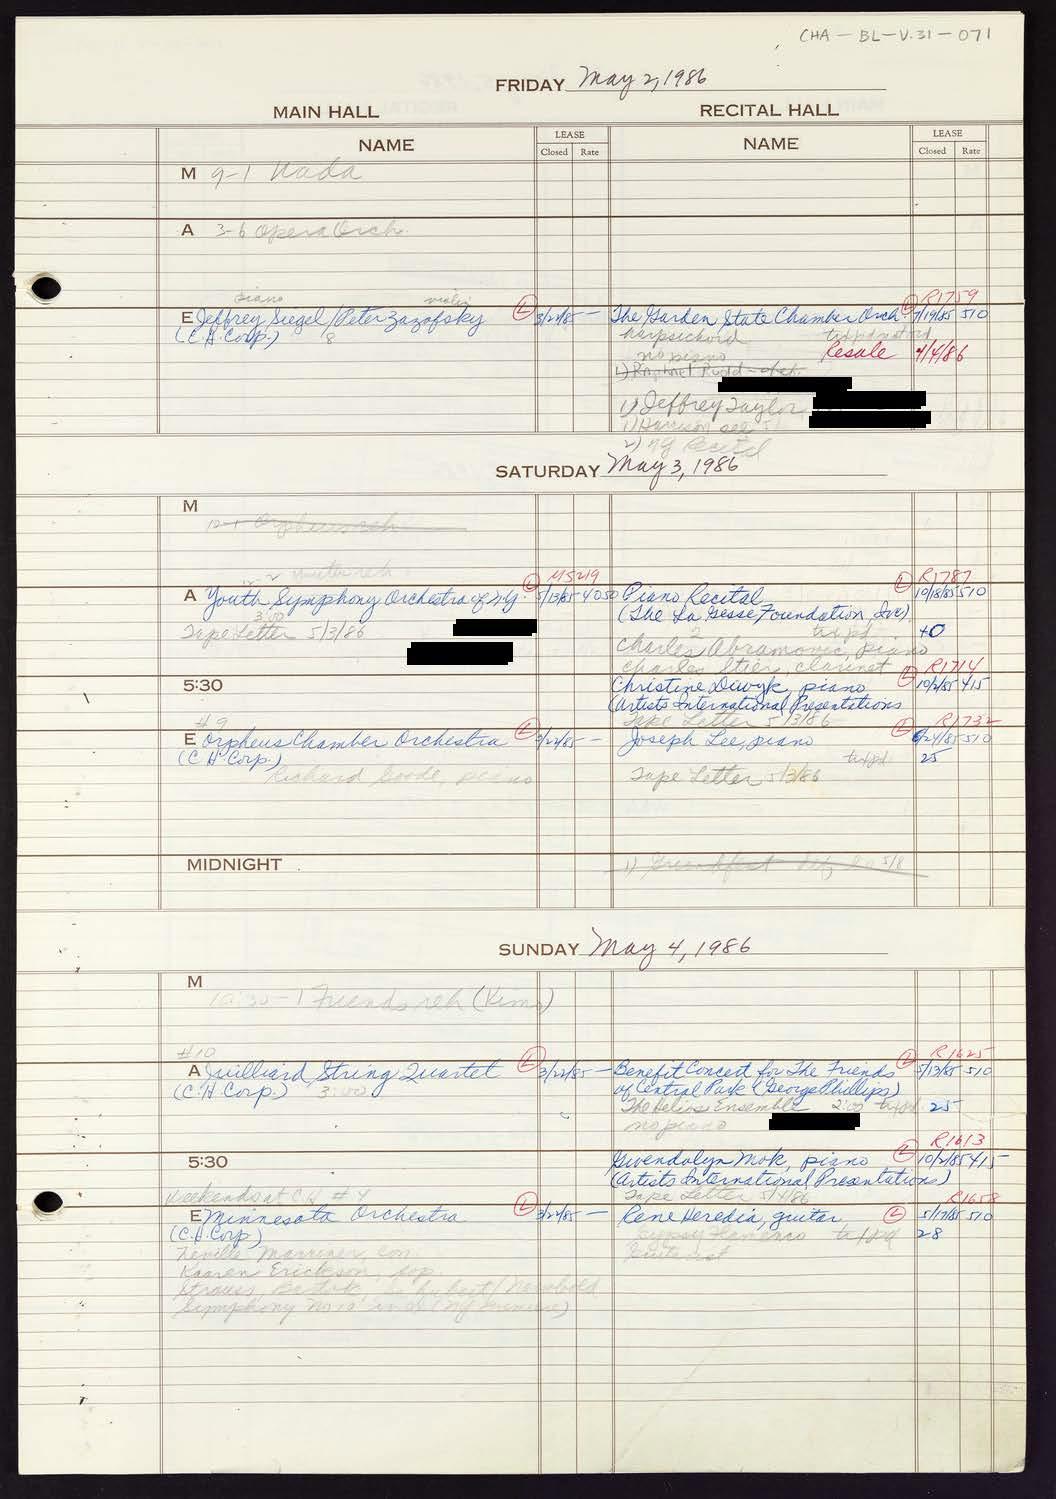 CHA-BL-V.31-071
FRIDAY May 2, 1986
MAIN HALL
RECITAL HALL
NAME
LEASE
Closed Rate
NAME
LEASE
Closed Rate
M 9-1
A 3-6 Opera Orch.
piano violin
E Jeffrey Siegel/Peter Zazofsky L 3/22/85 —
(C.H. Corp.) 8
R1759
The Garden State Chamber Orch. L 7/19/85 510
harpsichord
no piano Resale 4/4/86
1) Jeffrey Taylor
1) Harrison see
2) NY Recital
SATURDAY May 3, 1986
M
12-1 Orpheus reh
A Youth Symphony Orchestra of N.Y. L M5219 5/13/85 4050
3:00
Tape Letter 5/3/86
R1787
Piano Recital L 10/18/85 510
(The La Gesse Foundation, Inc)
2 tix pd. 40
Charles Abramovic, piano
Charles Stier, clarinet
5:30
R1714
Christine Diwyk, piano L 10/2/85 415
(Artists International Presentations
Tape Letter 5/3/86
#9
E Orpheus Chamber Orchestra L 3/22/85 —
(C.H. Corp.)
Richard Goode, piano
R1732
Joseph Lee, piano L 6/24/85 510
tix pd 25
Tape Letter 5/3/86
MIDNIGHT
SUNDAY May 4, 1986
M
10:30-1 Friends reh (Kimo)
#10
A Juilliard String Quartet L 3/22/85 —
(C.H. Corp.) 3:00
R1625
Benefit Concert for The Friends L 5/13/85 510
of Central Park (George Phillips)
The Helios Ensemble 2:00 tix pd. 25
no piano
5:30
R1613
Gwendolyn Mok, piano L 10/2/85 415
(Artists International Presentations)
Tape Letter 5/4/86
Weekends at C.H. #4
E Minnesota Orchestra L 3/22/85 —
(C.H. Corp)
Neville Marriner, con.
Kaaren Erickson, sop.
Strauss, Bartok, Schubert/Newbould
Symphony No 10 in D (NY Premiere)
R1658
Rene Heredia, guitar L 5/17/85 510
Gypsy Flamenco tix pd 28
Guitarist